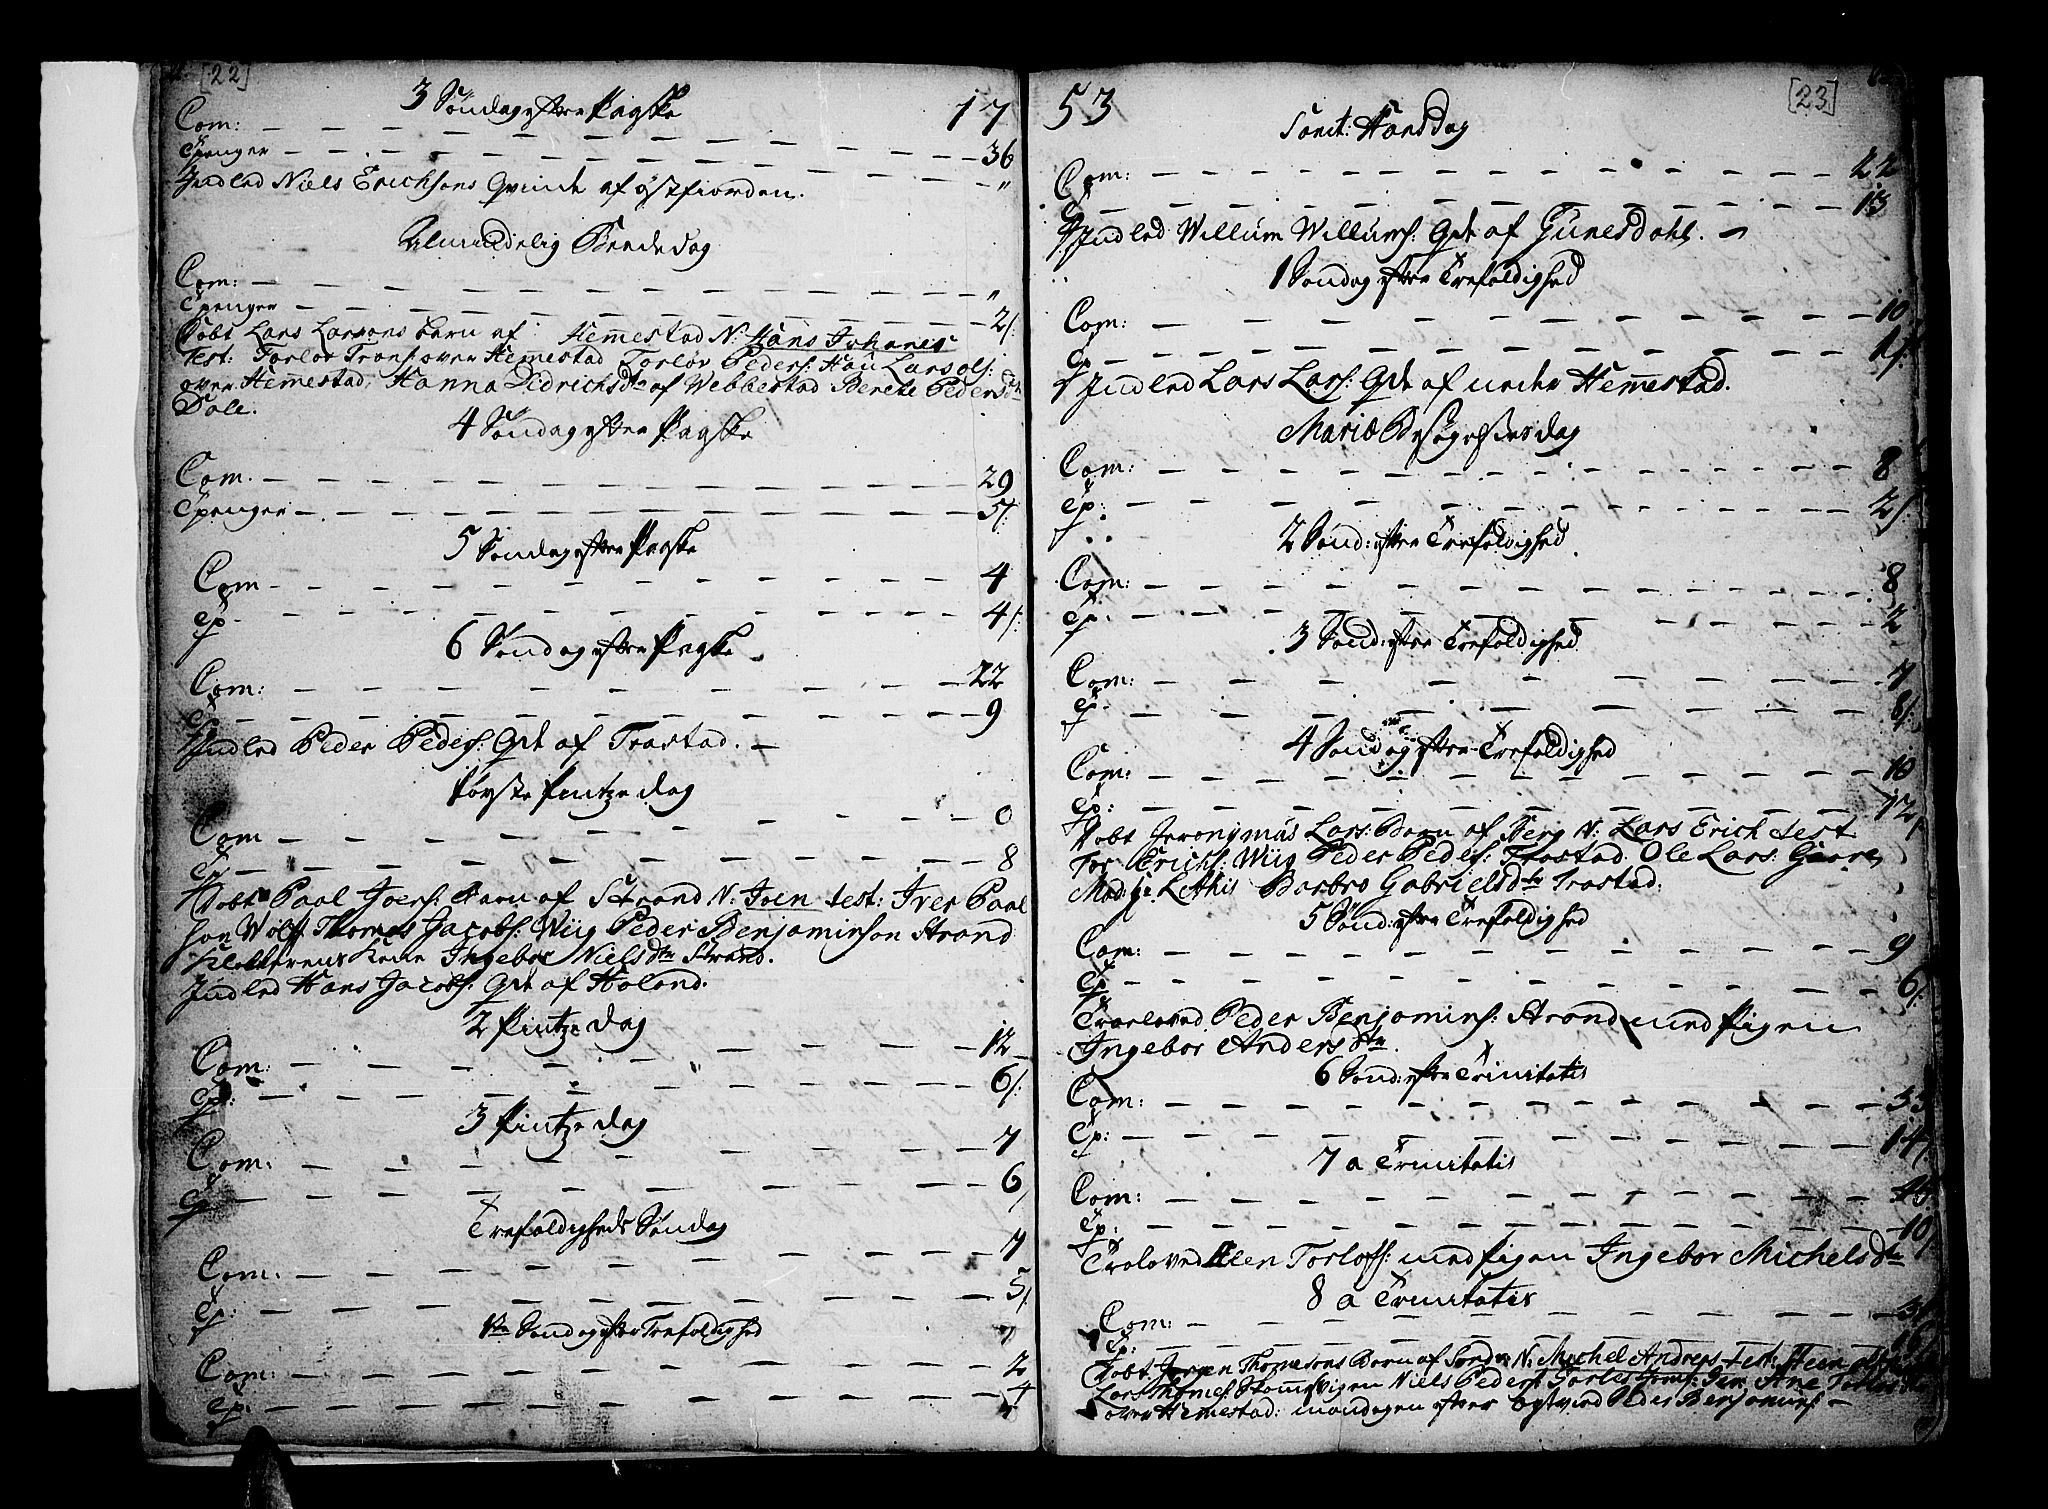 [22]
3 Søndag efter Paaske 17
Com:
Tpenger 36
Indled Niels Erichsens Qvinde af østfiorden.
Almindelig Beededag
Com: "
Tpenger 2/:
Døbt Lars Larsons barn af Hemestad N: Hans Johanes
Test: Torlov Over Hemestad Torløv Peders: Lars Ols:
over Hemestad, Hanna Didrichsdr af Vebbestad Berete Pedersdtr
Dale.
4 Søndag efter Paaske
Com. 29
Tpenger 5/:
5 Søndag efter Paaske
Com 4
Tp 4/:
6 Søndag efter Paaske
Com: 22
Tp 9
Indled Peder Peders: Qde af Trastad.
Første Pintze dag
Com 0
Tp 8
Døbt Paal Joers: Barn af Strand N: Joen test: Iver Paal
Wolf Thomas Jacobs: Wiig Peder Benjaminson Strand
Klokkerens Kone Ingebor Nielsdtr Strand.
Indled Hans Jacobs: Qde af Holand.
2 Pintze dag
Com: 12
Tp: 6/:
3 Pintze dag
Com: 7
Tp 6/
Trefoldigheds Søndag
Com: 7
Tp: 5/:
1ste Søndag efter Trefoldighed
Com: 2
Tp: 4
53 [23]
Sanct: Hans Dag
Com: 22
Tp 13
Indled Willum Willums: Qde af Gunesdahl.
1 Søndag efter Trefoldighed
Com: 10
Tp
Indled Lars Lars: Qde af under Hemestad.
Mariæ Besøgelses dag
Com: 8
Tp: 2/:
2 Sønd: efter Trefoldighed
Com: 8
Tp: 2
3 Sønd: efter Trefoldighed
Com: 7
Tp 6/:
4 Søndag efter Trefoldighed
Com: 10
Tp: 12/
Døbt Jeronymus Lars: Barn af Berg N: Lars Erich test
Tor Erichs: Wiig Peder Peders: Trastad. Ole Lars:
Barbro Gabrielsdtr Trastad.
5 Sønd: efter Trefoldighed
Com: 9
Tp 6/:
Troeloved Peder Benjamins: Strand med Pigen
Ingebor Andersdtr
6 Sønd: efter Trinitatis
Com: 33
Tp: 14/
7 a Trinitatis
Com:
Tp: 10/:
Troloved Elen Torlofs: med Pigen Ingebor Michelsdtr
8 a Trinitatis
Com:
Tp:
Døbt Jørgen Thomesons Barn af N: Michel Andreas Test: Steen
Lars Thomes: Niels Peders: Ane
over Hemestad: mandagen efter Peder Benjamins: